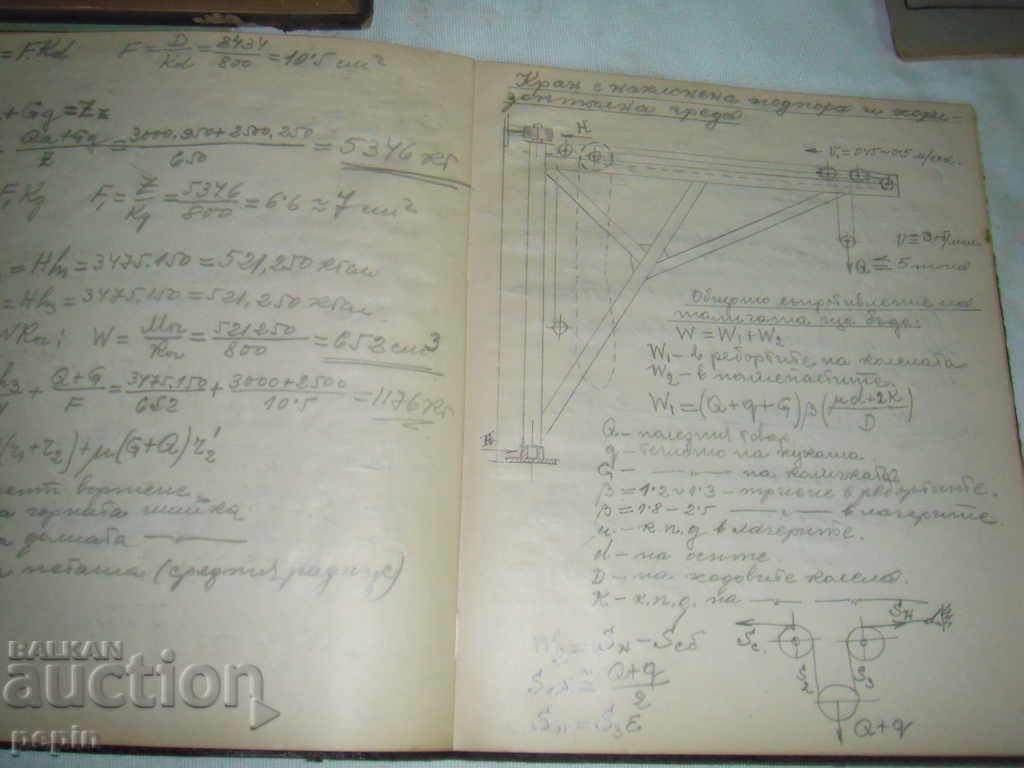 = F.Kd F = D/Kd = 8434/800 = 10·5 cm²
+ Gg = Zz
= Qa+Gg/Z = 3000.950+2500.250/650 = 5346 кг
F₁Kg F₁ = Z/Kg = 5346/800 = 6·6 ≈ 7 cm²
= Hh₁ = 3475.150 = 521,250 кгсм
= Hh₃ = 3475.150 = 521,250 кгсм.
W = 521250/800 = 652 cm³
+ Q+G/F = 3475.150/652 + 3000+2500/10·5 = 1176 кг
(r₁+r₂)+μ(G+Q)r₂'
въртене
горната шийка
долната —〃—
(средния радиус)
Кран с наклонена подпора и хори-
зонтална греда
H
V₁=
Q = 5 тона
H
Общото съпротивление на
ще бъде:
W = W₁ + W₂
W₁ - в ребордите на колелата
W₂ - в полиспастите.
W₁ = (Q+q+G) β (μd+2K/D)
Q - полезния товар
q - теглото на куката.
G - —〃— на количката
β = 1·2 ÷ 1·3 - триене в ребордите.
β = 1·8 - 2·5 —〃— в лагерите.
μ - к.п.д. в лагерите.
d - на осите
D - на ходовите колела.
K - к.п.д. на —〃—
= Sн - Sсб
Q+q/2
Sн = S₃ε
Sс.
Sн
S₂
S₃
Q+q
BALKAN
auction
pepin